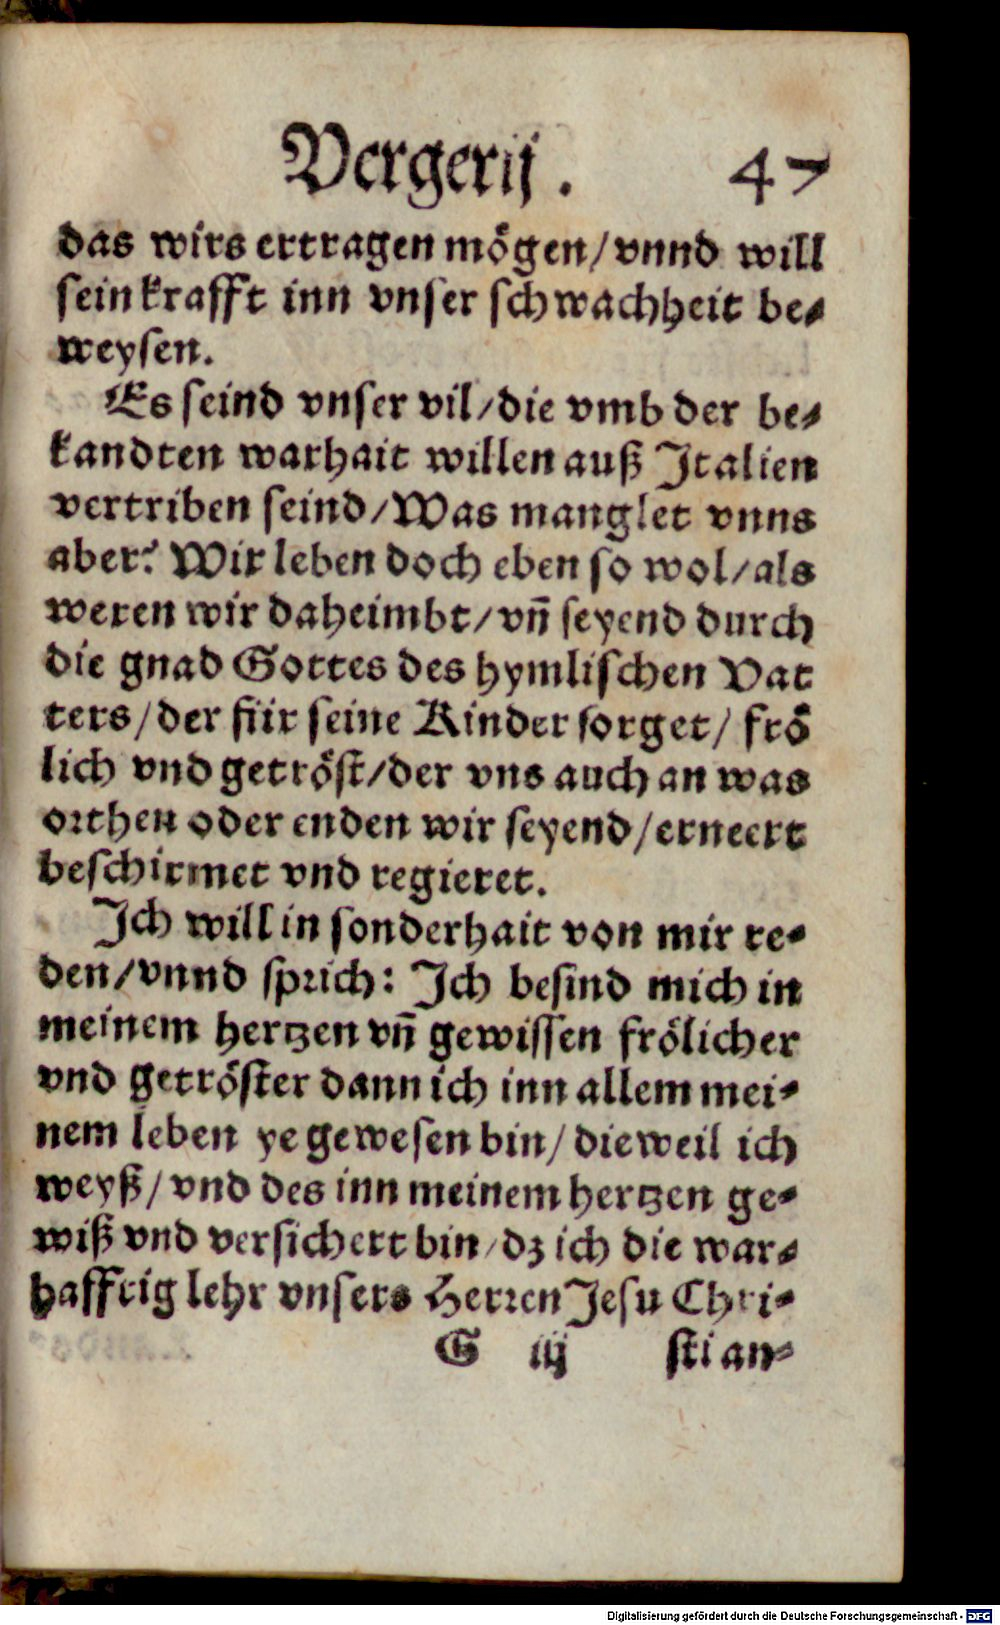 Vergerij. 47
das wirs ertragen mögen/ vnnd will
sein krafft inn vnser schwachheit be-
weysen.
Es seind vnser vil/ die vmb der be-
kandten warhait willen auß Italien
vertriben seind/ Was manglet vnns
aber? Wir leben doch eben so wol/ als
weren wir daheimbt/ vñ seyend durch
die gnad Gottes des hymlischen Vat
ters/ der für seine Kinder sorget/ frö
lich vnd getröst/ der vns auch an was
orthen oder enden wir seyend/ erneert
beschirmet vnd regieret.
Ich will in sonderhait von mir re-
den/ vnnd sprich: Ich besind mich in
meinem hertzen vñ gewissen frölicher
vnd getröster dann ich inn allem mei-
nem leben ye gewesen bin/ dieweil ich
weyß/ vnd des inn meinem hertzen ge-
wiß vnd versichert bin/ dz ich die war-
hafftig lehr vnsers Herren Jesu Chri-
G iij stian-
Digitalisierung gefördert durch die Deutsche Forschungsgemeinschaft - DFG